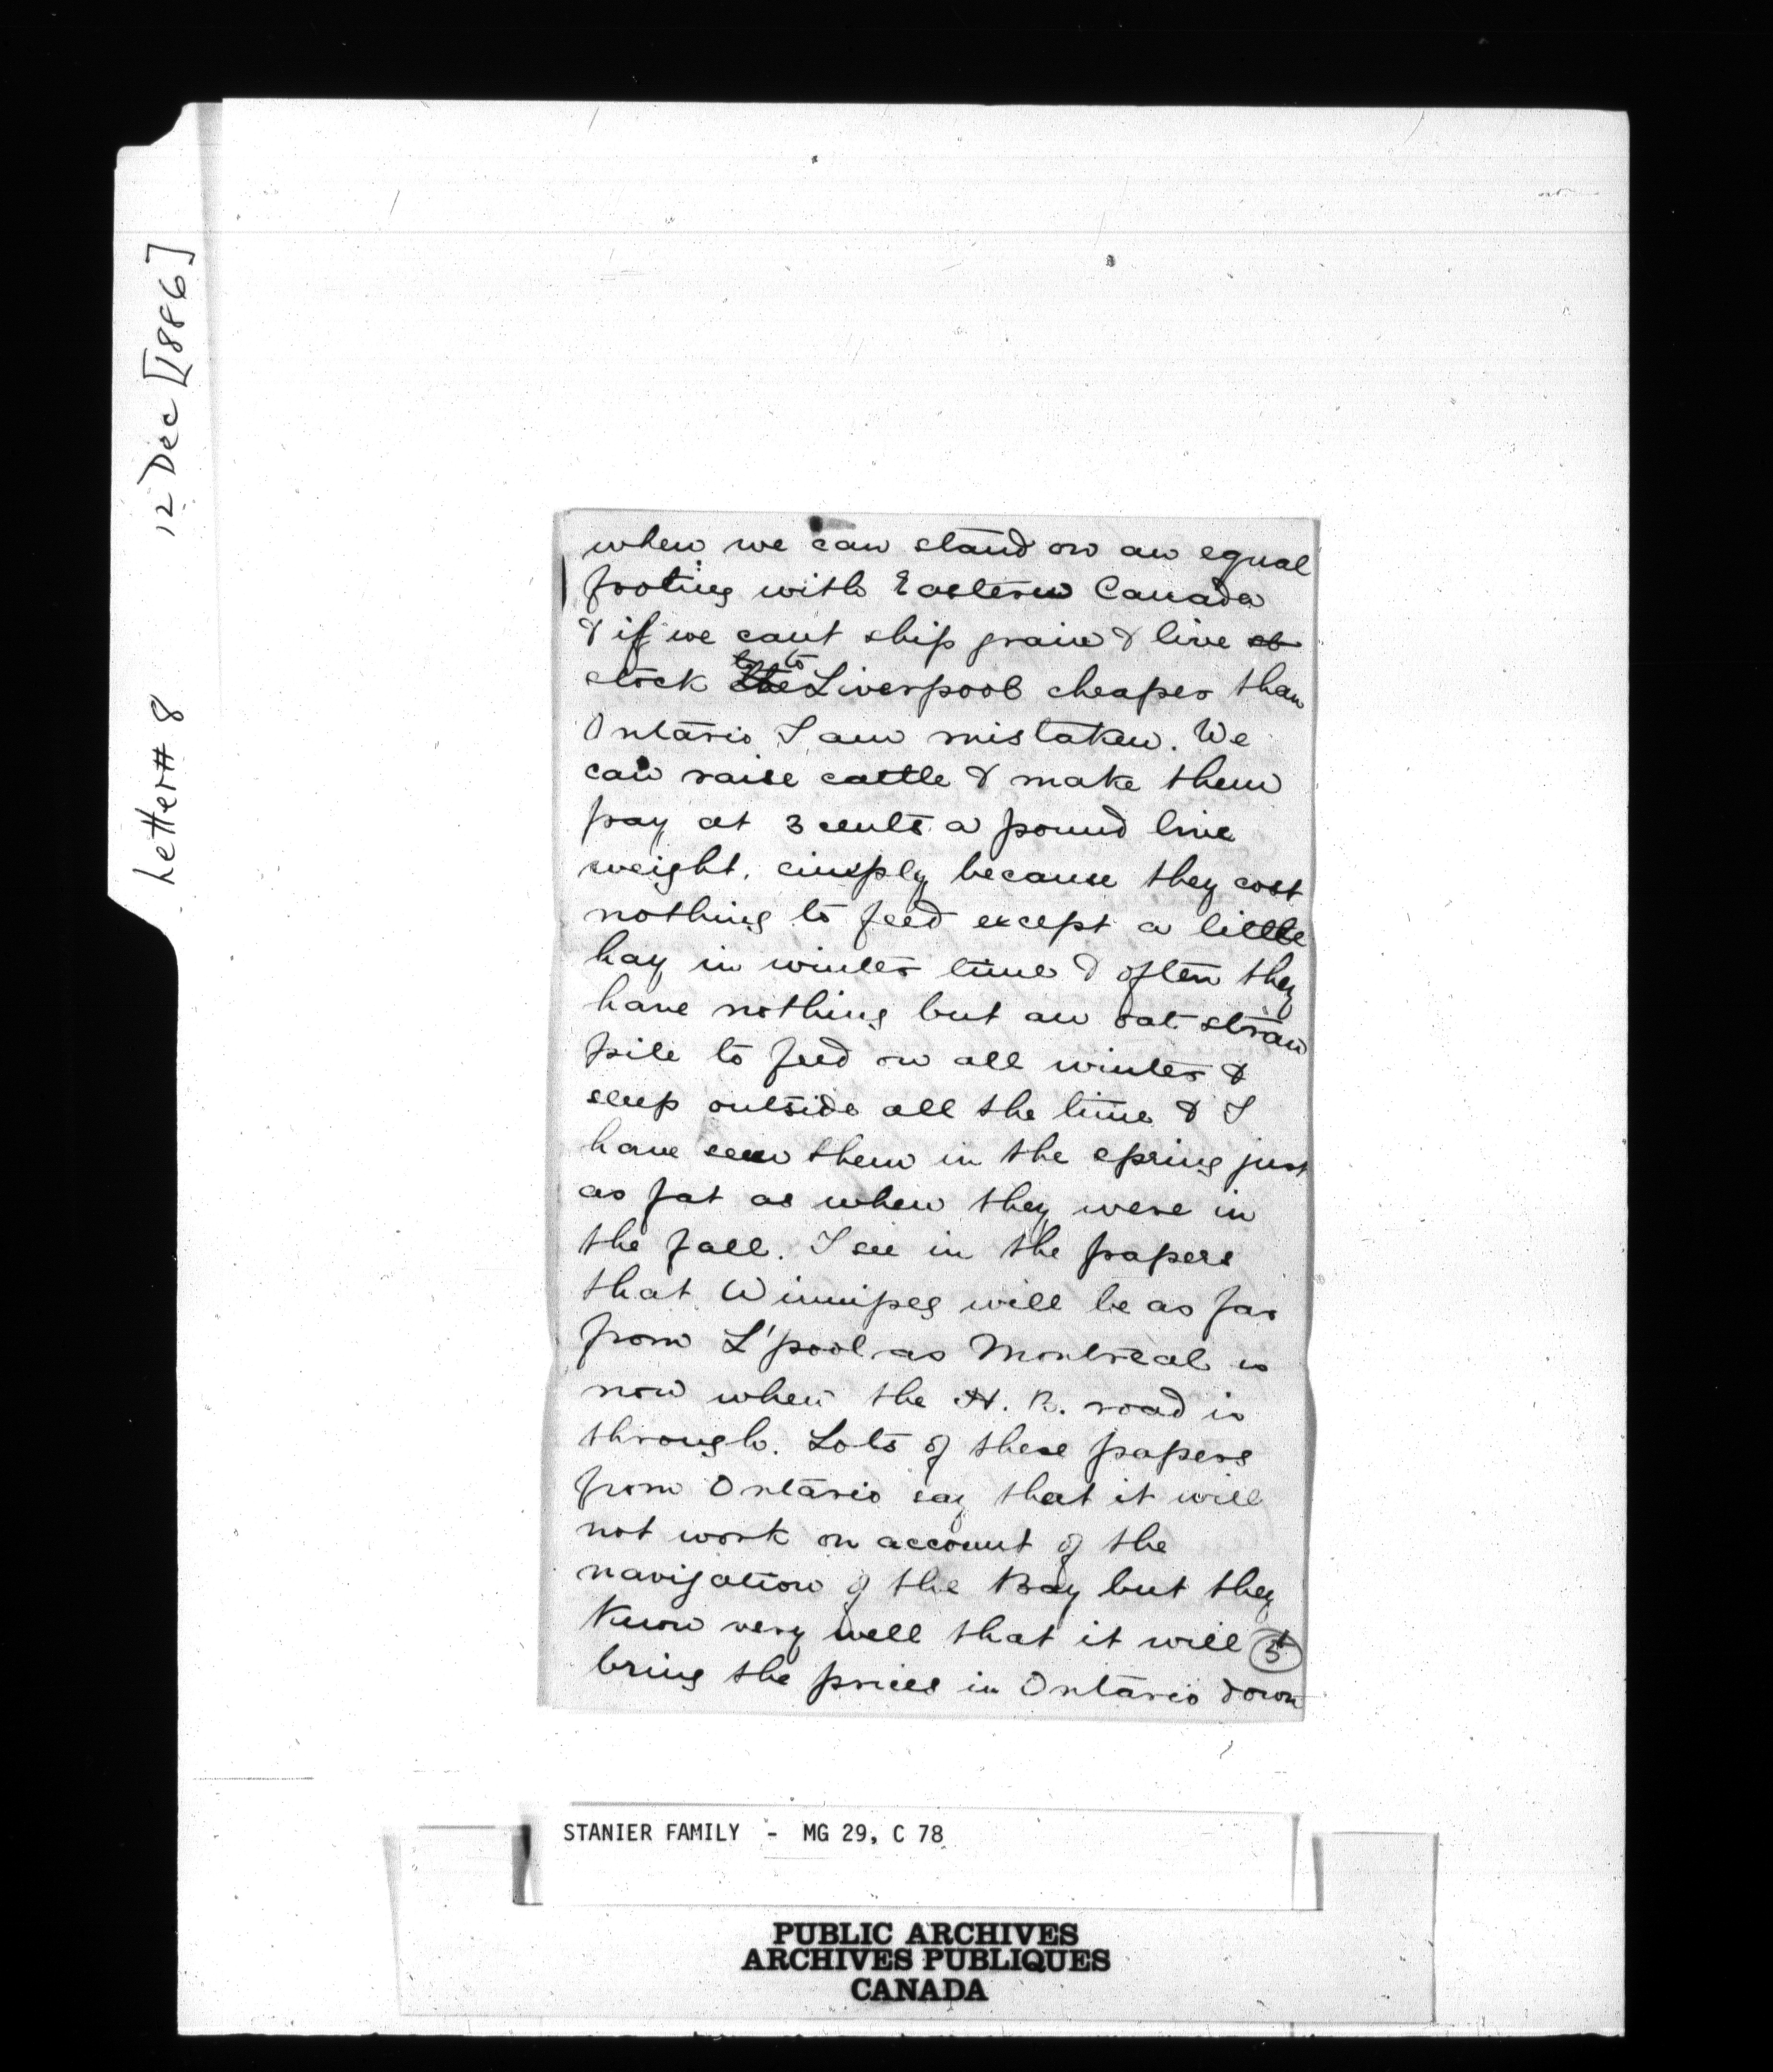 Letter # 8 12 Dec [1886]
when we can stand on an equal
footing with Eastern Canada
& if we cant ship grain & live st
stock the to Liverpool cheaper than
Ontario I am mistaken. We
can raise cattle & make them
pay at 3 cents a pound live
weight. simply because they cost
nothing to feed except a little
hay in winter time & often they
have nothing but an oat straw
pile to feed on all winter &
sleep outside all the time & I
have seen them in the spring just
as fat as when they were in
the fall. I see in the papers
that Winnipeg will be as far
from L'pool as Montreal is
now when the H. B. road is
through. Lots of these papers
from Ontario say that it will
not work on account of the
navigation of the Bay but they
know very well that it will 5
bring the prices in Ontario down
STANIER FAMILY - MG 29, C 78
PUBLIC ARCHIVES
ARCHIVES PUBLIQUES
CANADA